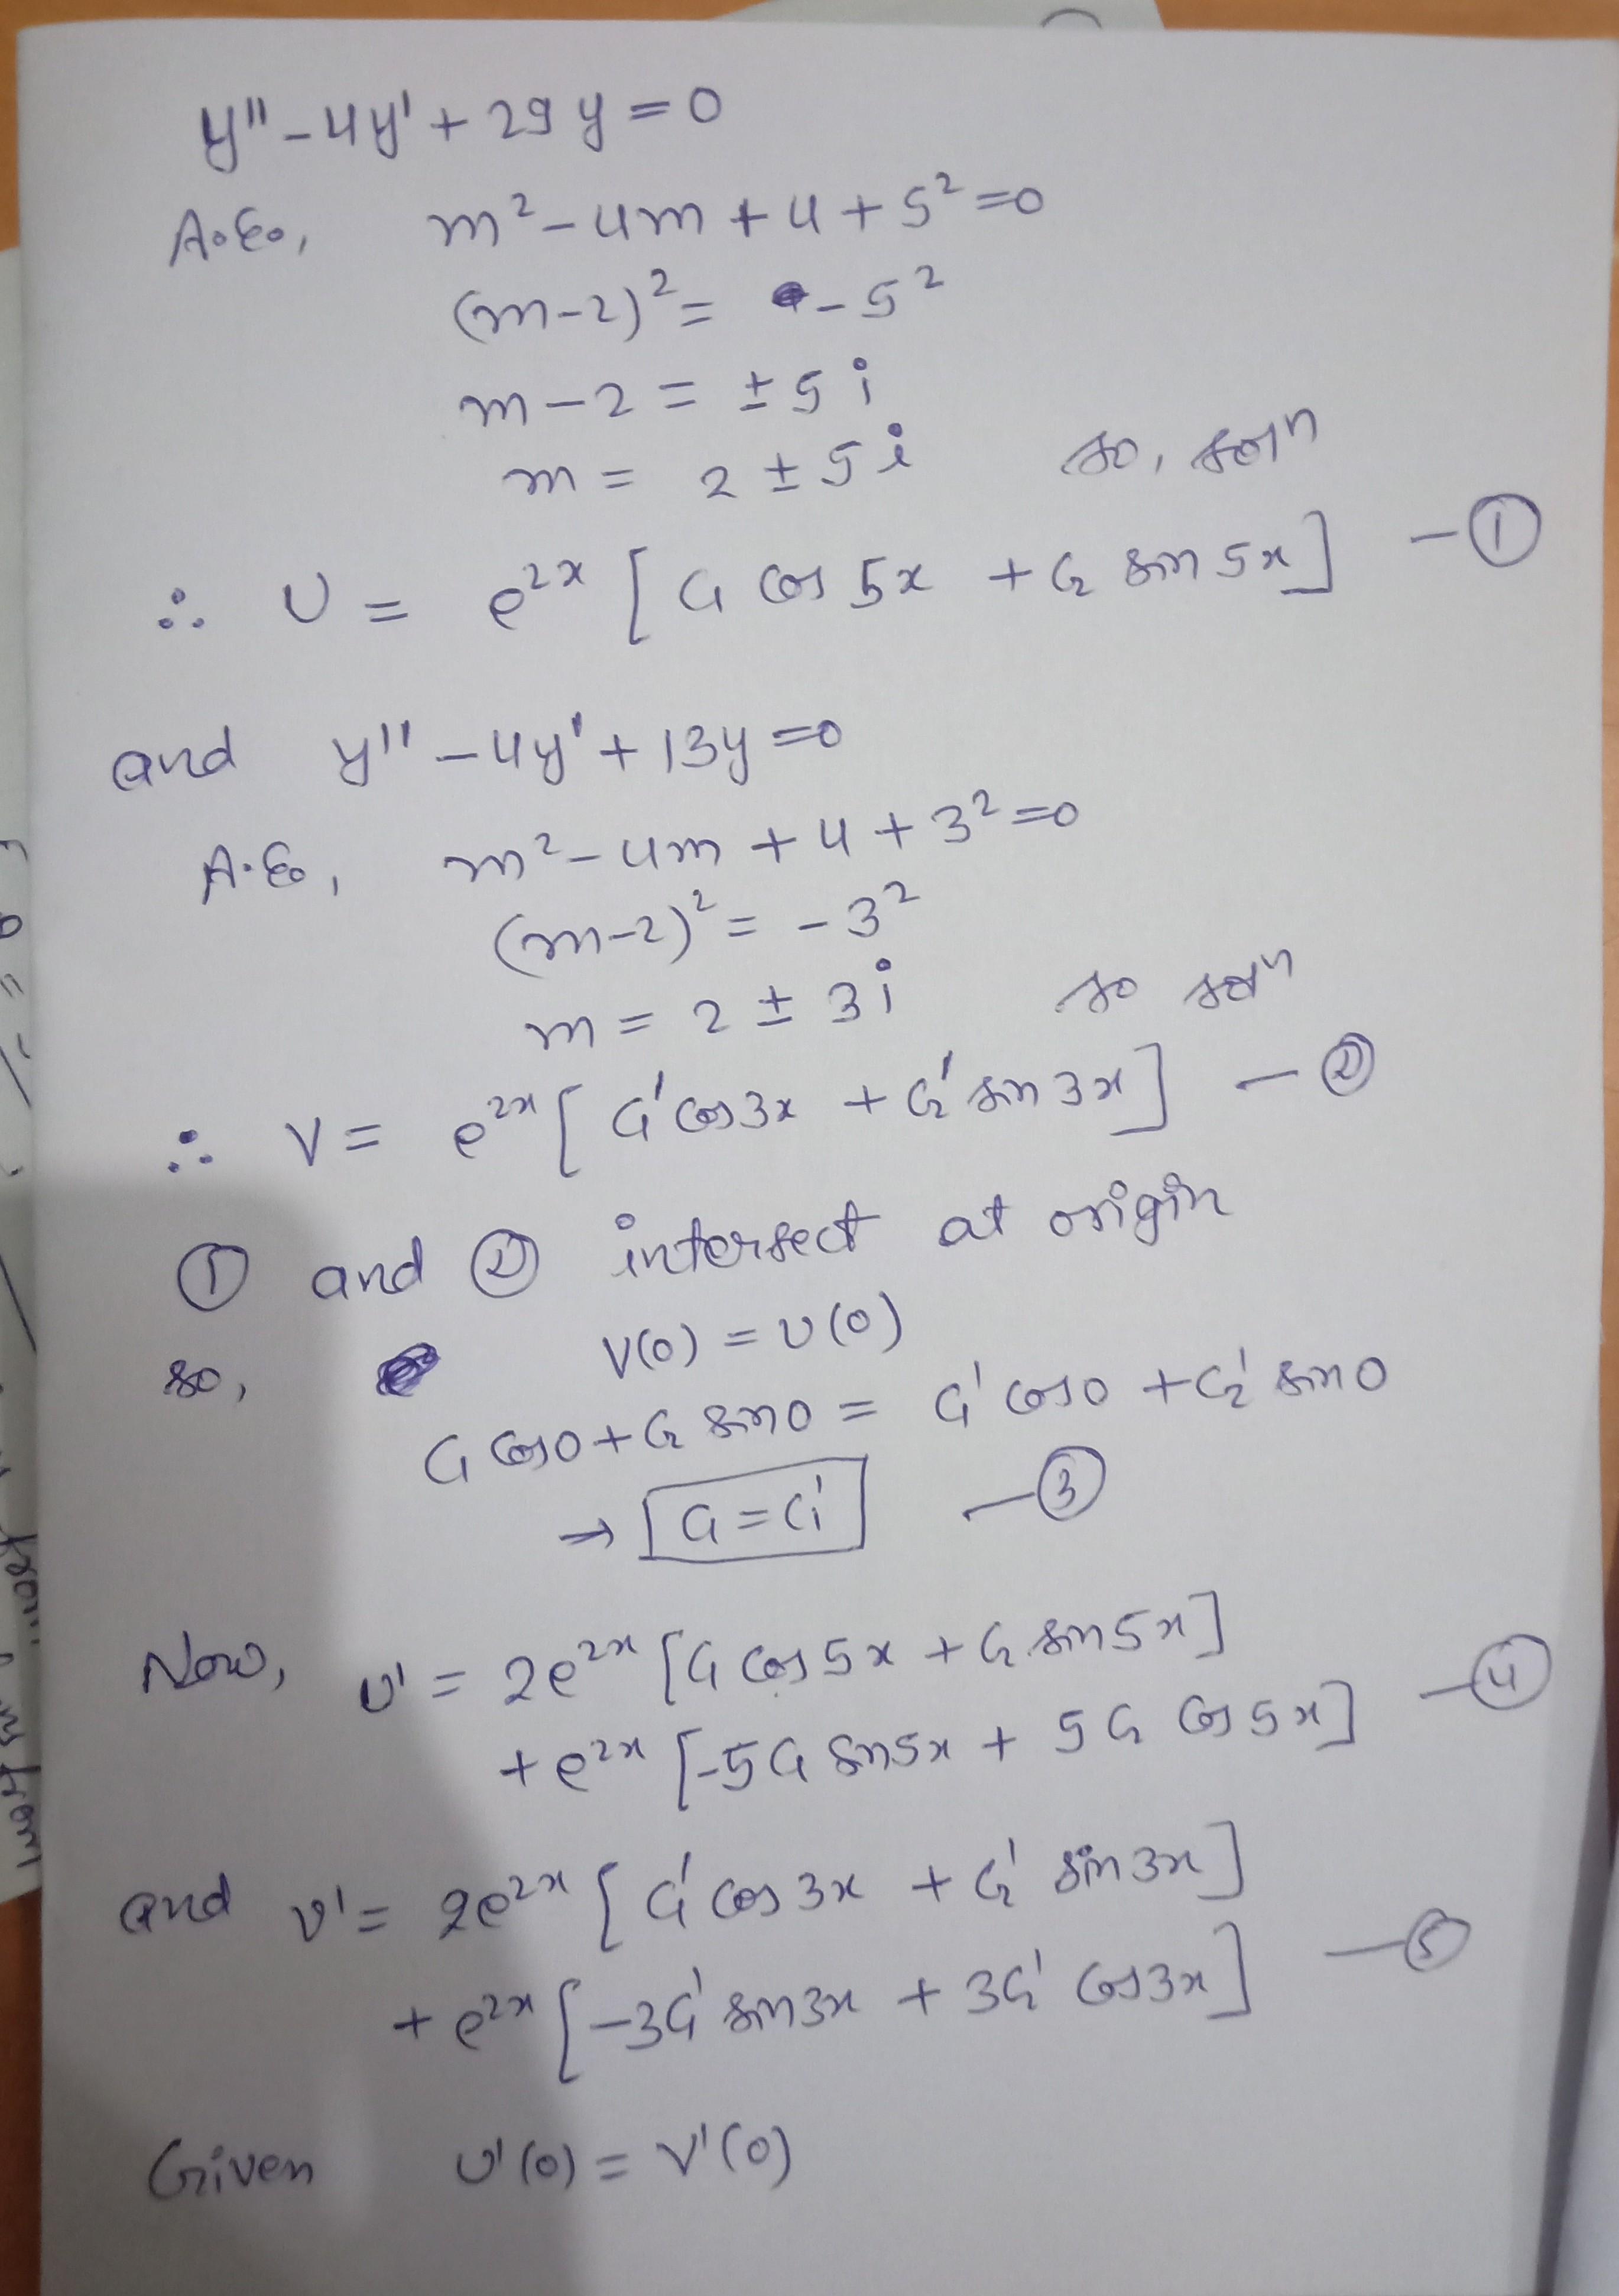 y'' - 4y' + 29y = 0
A.E., m² - 4m + 4 + 5² = 0
(m-2)² = -5²
m - 2 = ± 5i
m = 2 ± 5i so, solⁿ
∴ U = e²ˣ [C₁ cos 5x + C₂ sin 5x] - ①
and y'' - 4y' + 13y = 0
A.E., m² - 4m + 4 + 3² = 0
(m-2)² = -3²
m = 2 ± 3i so solⁿ
∴ V = e²ˣ [C₁' cos 3x + C₂' sin 3x] - ②
① and ② intersect at origin
so, V(0) = U(0)
C₁ cos 0 + C₂ sin 0 = C₁' cos 0 + C₂' sin 0
⇒ C₁ = C₁' - ③
Now, U' = 2e²ˣ [C₁ cos 5x + C₂ sin 5x]
+ e²ˣ [-5C₁ sin 5x + 5C₂ cos 5x] - ④
and V' = 2e²ˣ [C₁' cos 3x + C₂' sin 3x]
+ e²ˣ [-3C₁' sin 3x + 3C₂' cos 3x] - ⑤
Given U'(0) = V'(0)